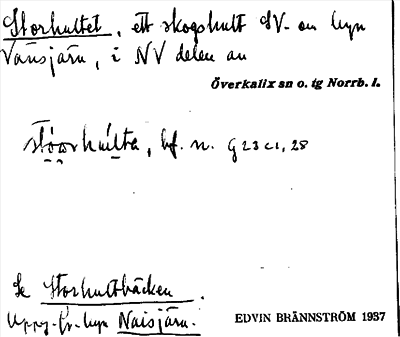 Storhultet, ett skogshult SV- om byn
Vansjärn, i NV delen av
Överkalix sn o. tg Norrb. l.
bf. n. G 23 c1, 28
Se Storhultbäcken.
Uppg. fr. byn Naisjärn.
EDVIN BRÄNNSTRÖM 1937